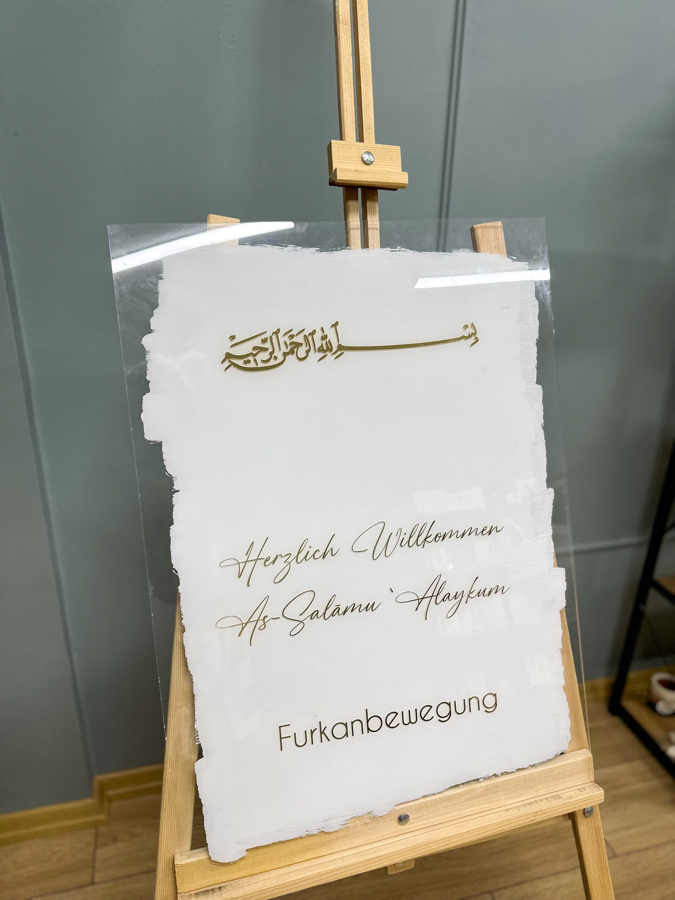 بِسْمِ اللهِ الرَّحْمٰنِ الرَّحِيْمِ
Herzlich Willkommen
As-Salāmu `Alaykum
Furkanbewegung